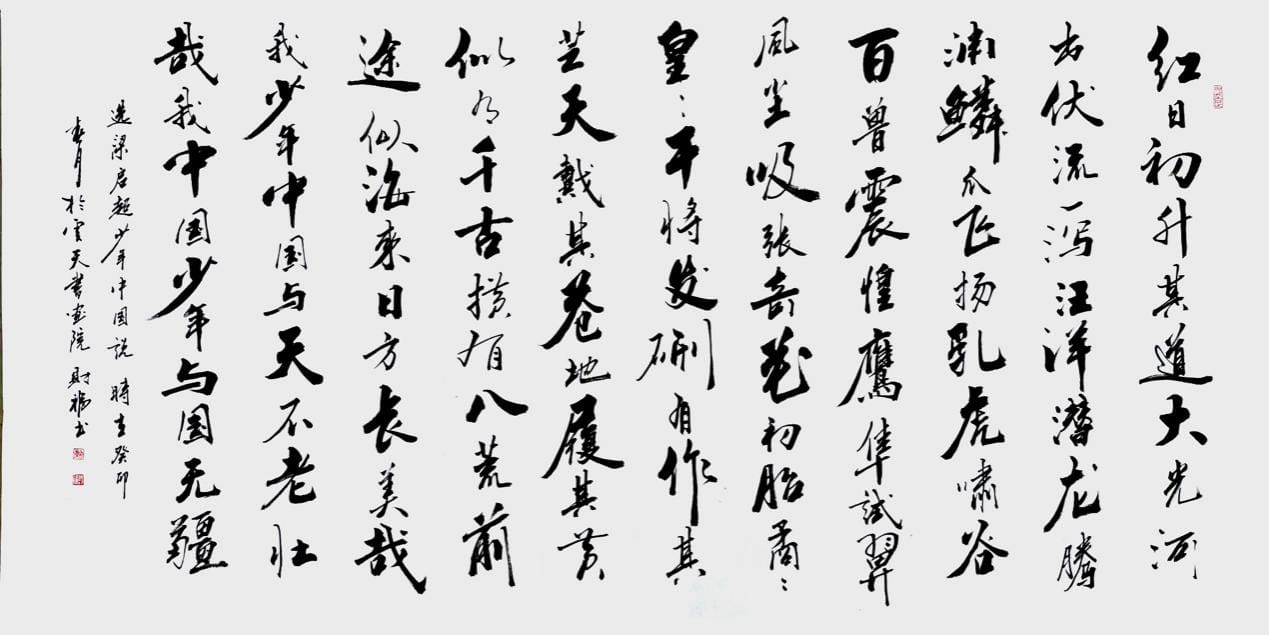 红日初升其道大光河
出伏流一泻汪洋潜龙腾
渊鳞爪飞扬乳虎啸谷
百兽震惶鹰隼试翼
风尘吸张奇花初胎矞〻
皇〻干将发硎有作其
芒天戴其苍地履其黄
纵有千古横有八荒前
途似海来日方长美哉
我少年中国与天不老壮
哉我中国少年与国无疆
選梁启超少年中国説 時在癸卯
春月於雲天書画院 财福书